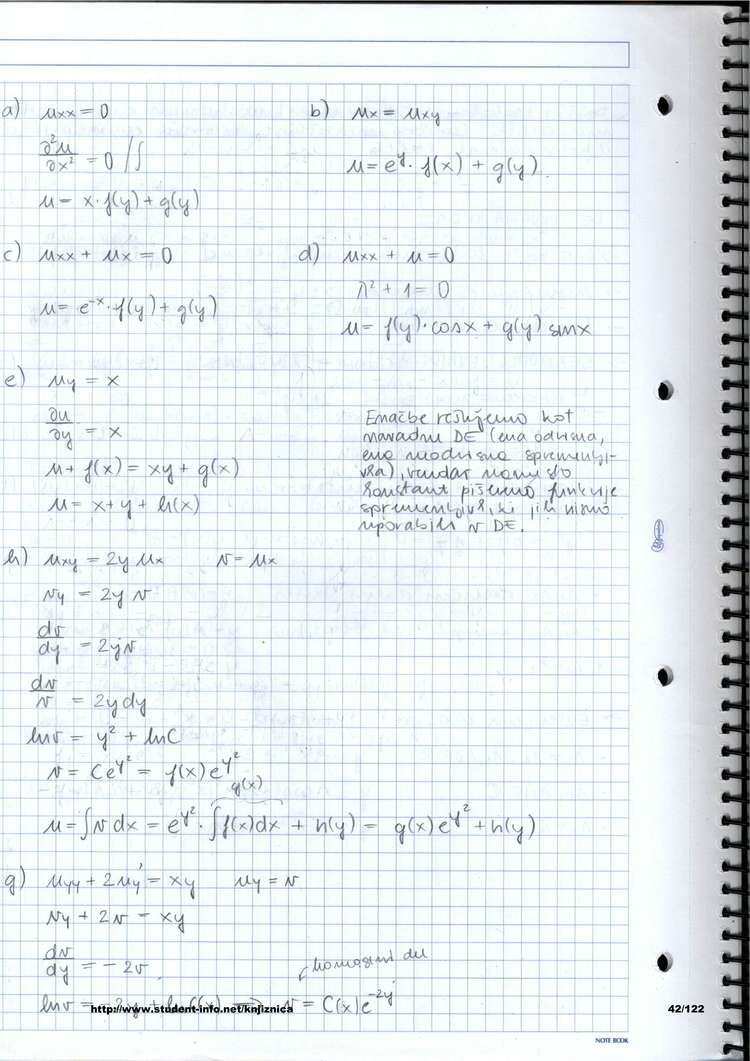 a) uxx = 0
∂²u/∂x² = 0 /∫
u = x·f(y) + g(y)
b) ux = uxy
u = e^y · f(x) + g(y)
c) uxx + ux = 0
u = e^-x · f(y) + g(y)
d) uxx + u = 0
λ² + 1 = 0
u = f(y)·cosx + g(y) sinx
e) uy = x
∂u/∂y = x
u + f(x) = xy + g(x)
u = x+y + h(x)
Enačbe rešujemo kot
navadne DE (ena odvisna,
ena neodvisna spremenlji-
vka), vendar namesto
konstant pišemo funkcije
spremenljivk, ki jih nismo
uporabili v DE.
h) uxy = 2y ux v = ux
vy = 2y v
dv/dy = 2yv
dv/v = 2y dy
lnv = y² + lnC
v = Ce^y² = f(x)e^y²
g(x)
u = ∫v dx = e^y² · ∫f(x)dx + h(y) = g(x)e^y² + h(y)
g) uyy + 2uy' = xy uy = v
vy + 2v = xy
dv/dy = -2v
homogeni del
lnv = -2y + ln C(x) ⟹ v = C(x)e^-2y
http://www.student-info.net/knjiznica
42/122
NOTE BOOK